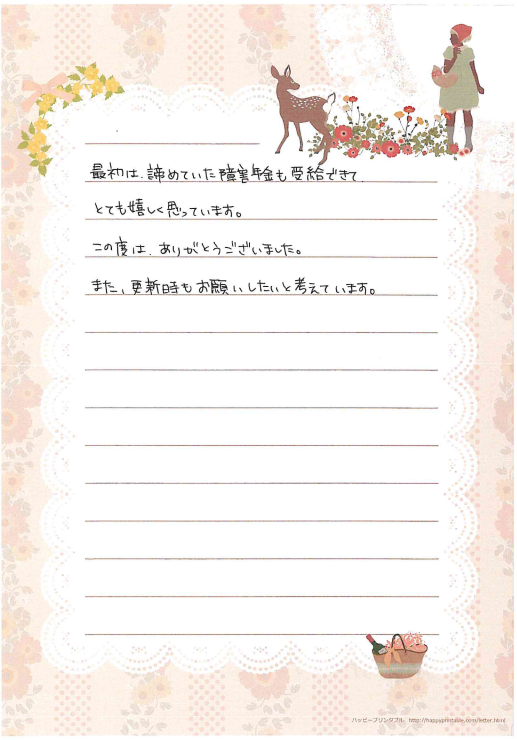 最初は、諦めていた障害年金も受給できて、
とても嬉しく思っています。
この度は、ありがとうございました。
また、更新時もお願いしたいと考えています。
ハッピープリンタブル http://happyprintable.com/letter.html